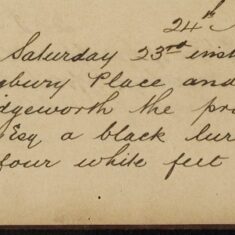 24th
Saturday 23rd inst
bury Place and
dgeworth the pr
Esq a black lur
four white feet